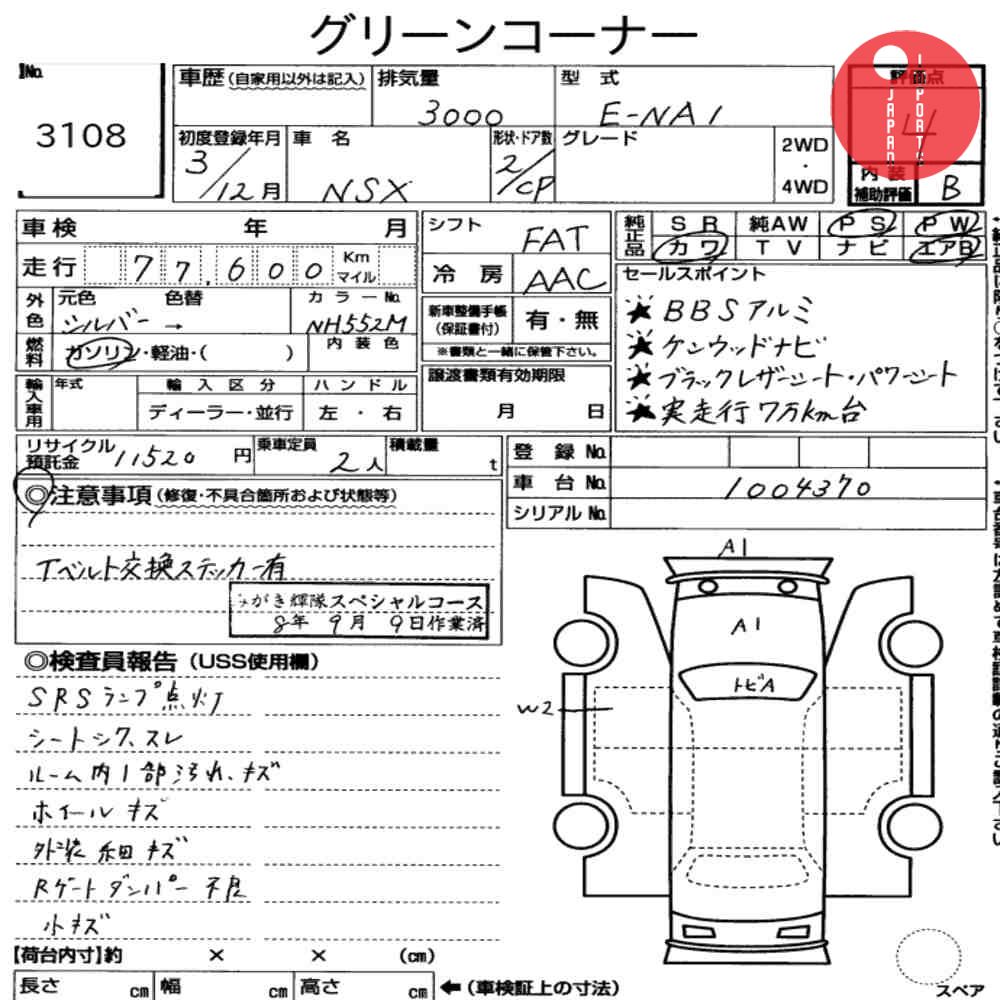 グリーンコーナー
No.
3108
車歴(自家用以外は記入)
排気量
3000
型 式
E-NA1
評価点
4
JAPAN
IMPORTS
初度登録年月
3/12月
車 名
NSX
形状・ドア数
2/CP
グレード
2WD
・
4WD
内 装
補助評価
B
車検 年 月
走行 77,600 Km マイル
外色
元色 色替
シルバー →
カラーNo.
NH552M
燃料
ガソリン・軽油・( )
内装色
輸入車用
年式
輸入区分
ディーラー・並行
ハンドル
左・右
シフト
FAT
冷房
AAC
新車整備手帳
(保証書付)
有・無
※書類と一緒に保管下さい。
譲渡書類有効期限
月 日
純正品
SR 純AW PS PW
カワ TV ナビ エアB
セールスポイント
★BBSアルミ
★ケンウッドナビ
★ブラックレザーシート・パワーシート
★実走行7万km台
リサイクル
預託金
11520円
乗車定員
2人
積載量
t
登録No.
車台No.
1004370
シリアルNo.
◎注意事項(修復・不具合箇所および状態等)
Tベルト交換ステッカー有
みがき輝隊スペシャルコース
8年 9月 9日作業済
◎検査員報告(USS使用欄)
SRSランプ点灯
シートシワ、スレ
ルーム内1部汚れ、キズ
ホイールキズ
外装細キズ
Rゲートダンパー不良
小キズ
A1
A1
トビA
W2
【荷台内寸】約 × × (cm)
長さ cm 幅 cm 高さ cm ←(車検証上の寸法)
スペア